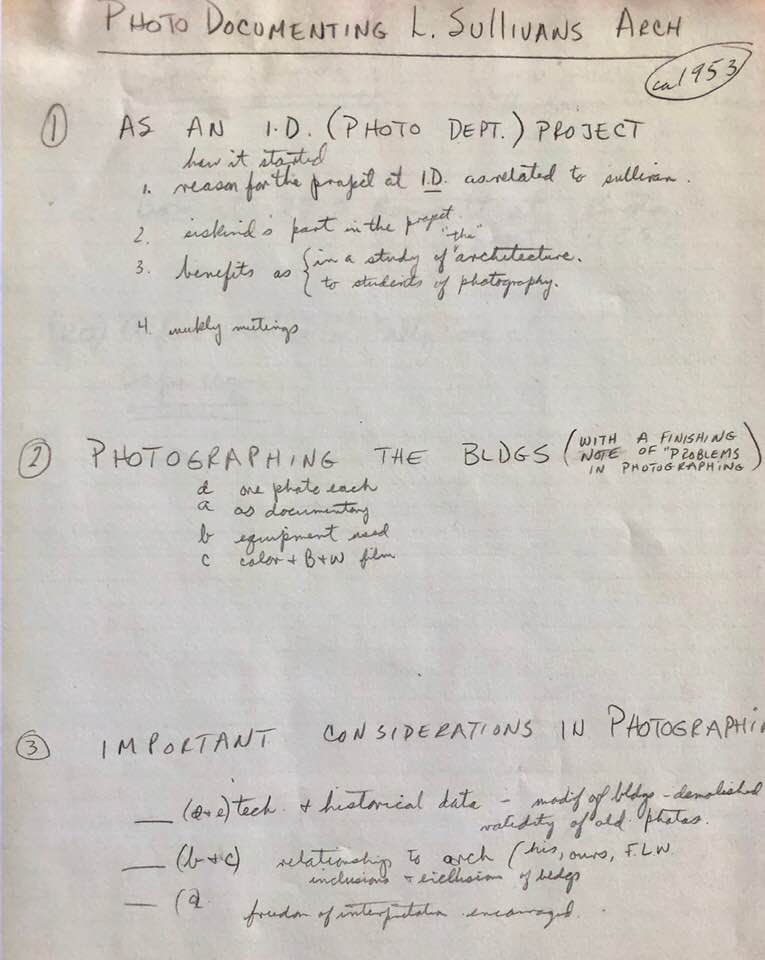 PHOTO DOCUMENTING L. SULLIVANS ARCH
ca 1953
① AS AN I.D. (PHOTO DEPT.) PROJECT
how it started
1. reason for the project at I.D. as related to sullivan.
2. siskind's part in the project.
"the"
3. benefits as { in a study of architecture.
to students of photography.
4. weekly meetings
② PHOTOGRAPHING THE BLDGS (WITH A FINISHING
NOTE OF "PROBLEMS
IN PHOTOGRAPHING)
d one photo each
a as documentary
b equipment used
c color + B+W film
③ IMPORTANT CONSIDERATIONS IN PHOTOGRAPHI
— (d+e) tech. + historical data - modif of bldgs - demolished
validity of old photos.
— (b+c) relationship to arch (his, ours, F.L.W.
inclusions + exclusion of bldgs
— (a. freedom of interpretation encouraged.